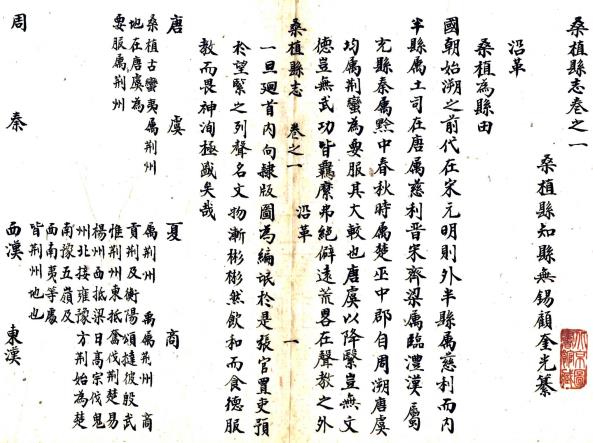 桑植縣志卷之一
桑植縣知縣無錫顧奎光纂
沿革
桑植為縣由
國朝始溯之前代在宋元明則外半縣属慈利而内
半縣属土司在唐属慈利晋宋齊梁属臨澧漢属
充縣秦属黔中春秋時属楚巫中郡自周溯唐虞
均属荆蠻為要服其大較也唐虞以降緊豈無文
德豈無武功皆羈縻弗絕僻遠荒畧在聲教之外
桑植縣志 卷之一 沿革 一
一旦廻首内向隷版圖為編氓於是張官置吏預
於望緊之列聲名文物漸彬彬然飲和而食德服
教而畏神洵極盛矣哉
唐 虞 夏 商
桑植古蠻夷属荆州
地在唐虞為
要服属荆州
属荆州 禹属荆州 商
貢荆及衡陽頌撻彼殷武
惟荆州東抵奮伐荆楚易
楊州西抵梁日高宗伐鬼
州北接雍豫方荆始為楚
南豫五嶺及
西南夷等處
皆荆州地也
周 秦 西漢 東漢